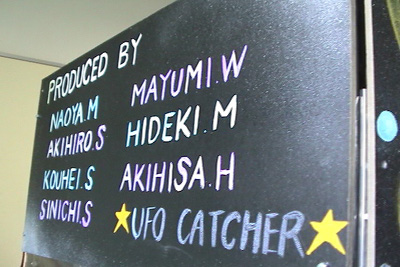 PRODUCED BY
NAOYA.M
AKIHIRO.S
KOUHEI.S
SINICHI.S
MAYUMI.W
HIDEKI.M
AKIHISA.H
UFO CATCHER